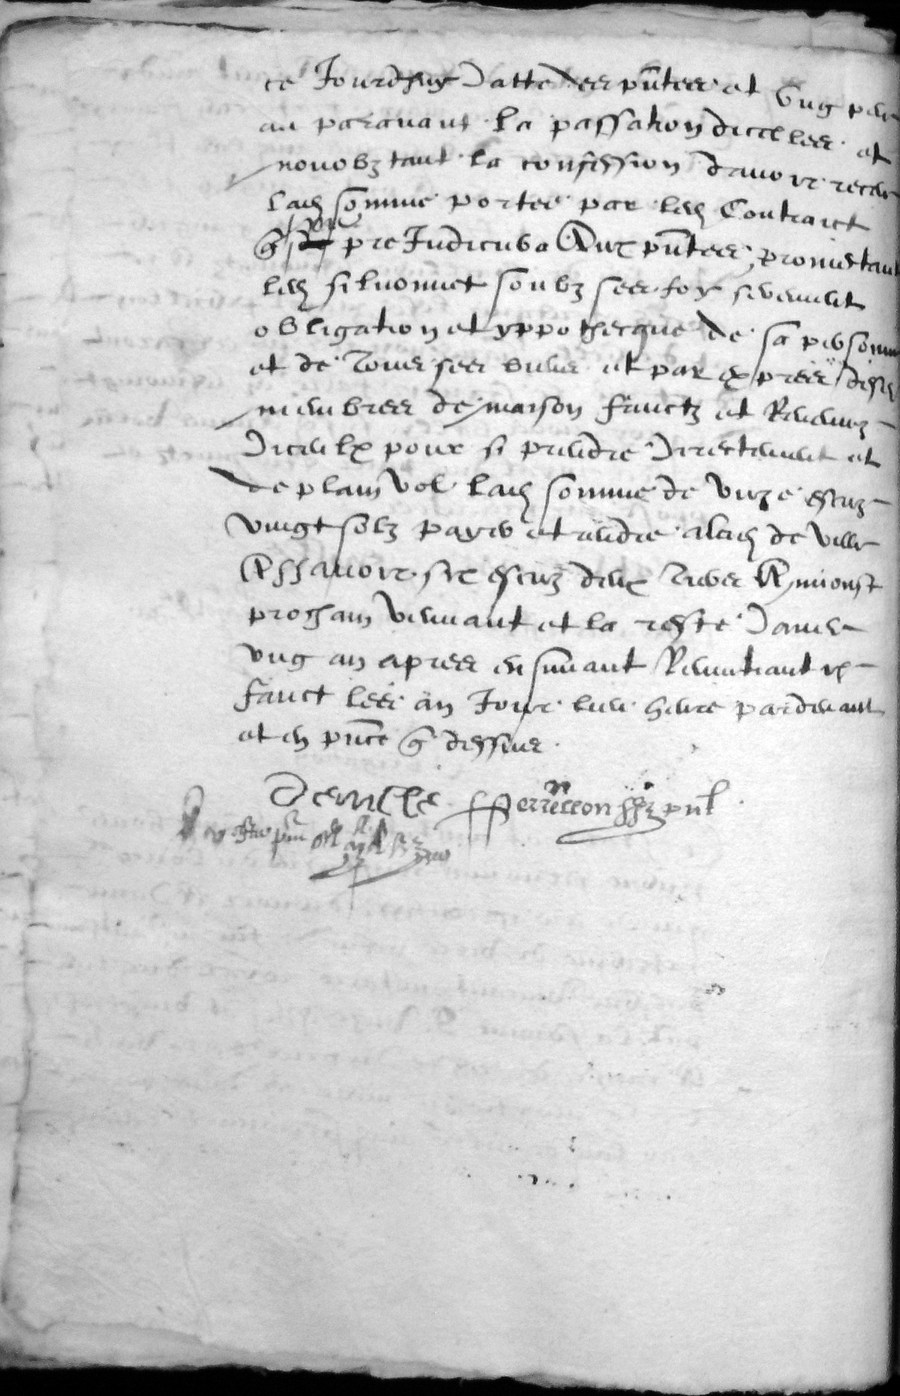 ce Jourdhuy datte des pñtes et ung peu
au paravant la passation dicelles et
nonobztant la confession davoir receu
lad somme portee par led Contraict
preIudicuba Aux pñtes, promectant
led silvomet soubz sees foy serement
obligation et yppothecque de sa personne
et de Tous sees biens et par expres
membrees de maison fruictz et Revenuz
diceulx pour si prendre directement et
de plain vol lad somme de unze escuz
vingt solz payer et rendre alad de ville
Assavoir six escuz deux
prochain venant et la reste dans
ung an apres ensuivant Renontiant
faict lees an Jour lieu heure pardevant
et en pñce q dessus
Deville Perrelleon pñt